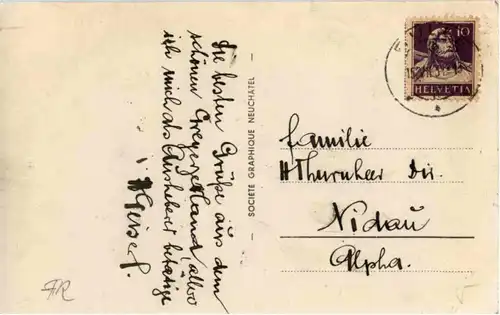 Die besten Grüße aus dem
schönen Greyerzerland, allwo
ich mich als Aushebers betätige
H Geiser.
SOCIETE GRAPHIQUE NEUCHÂTEL
10
HELVETIA
Familie
H Thurnheer Dir.
Nidau
Alpha.
AR